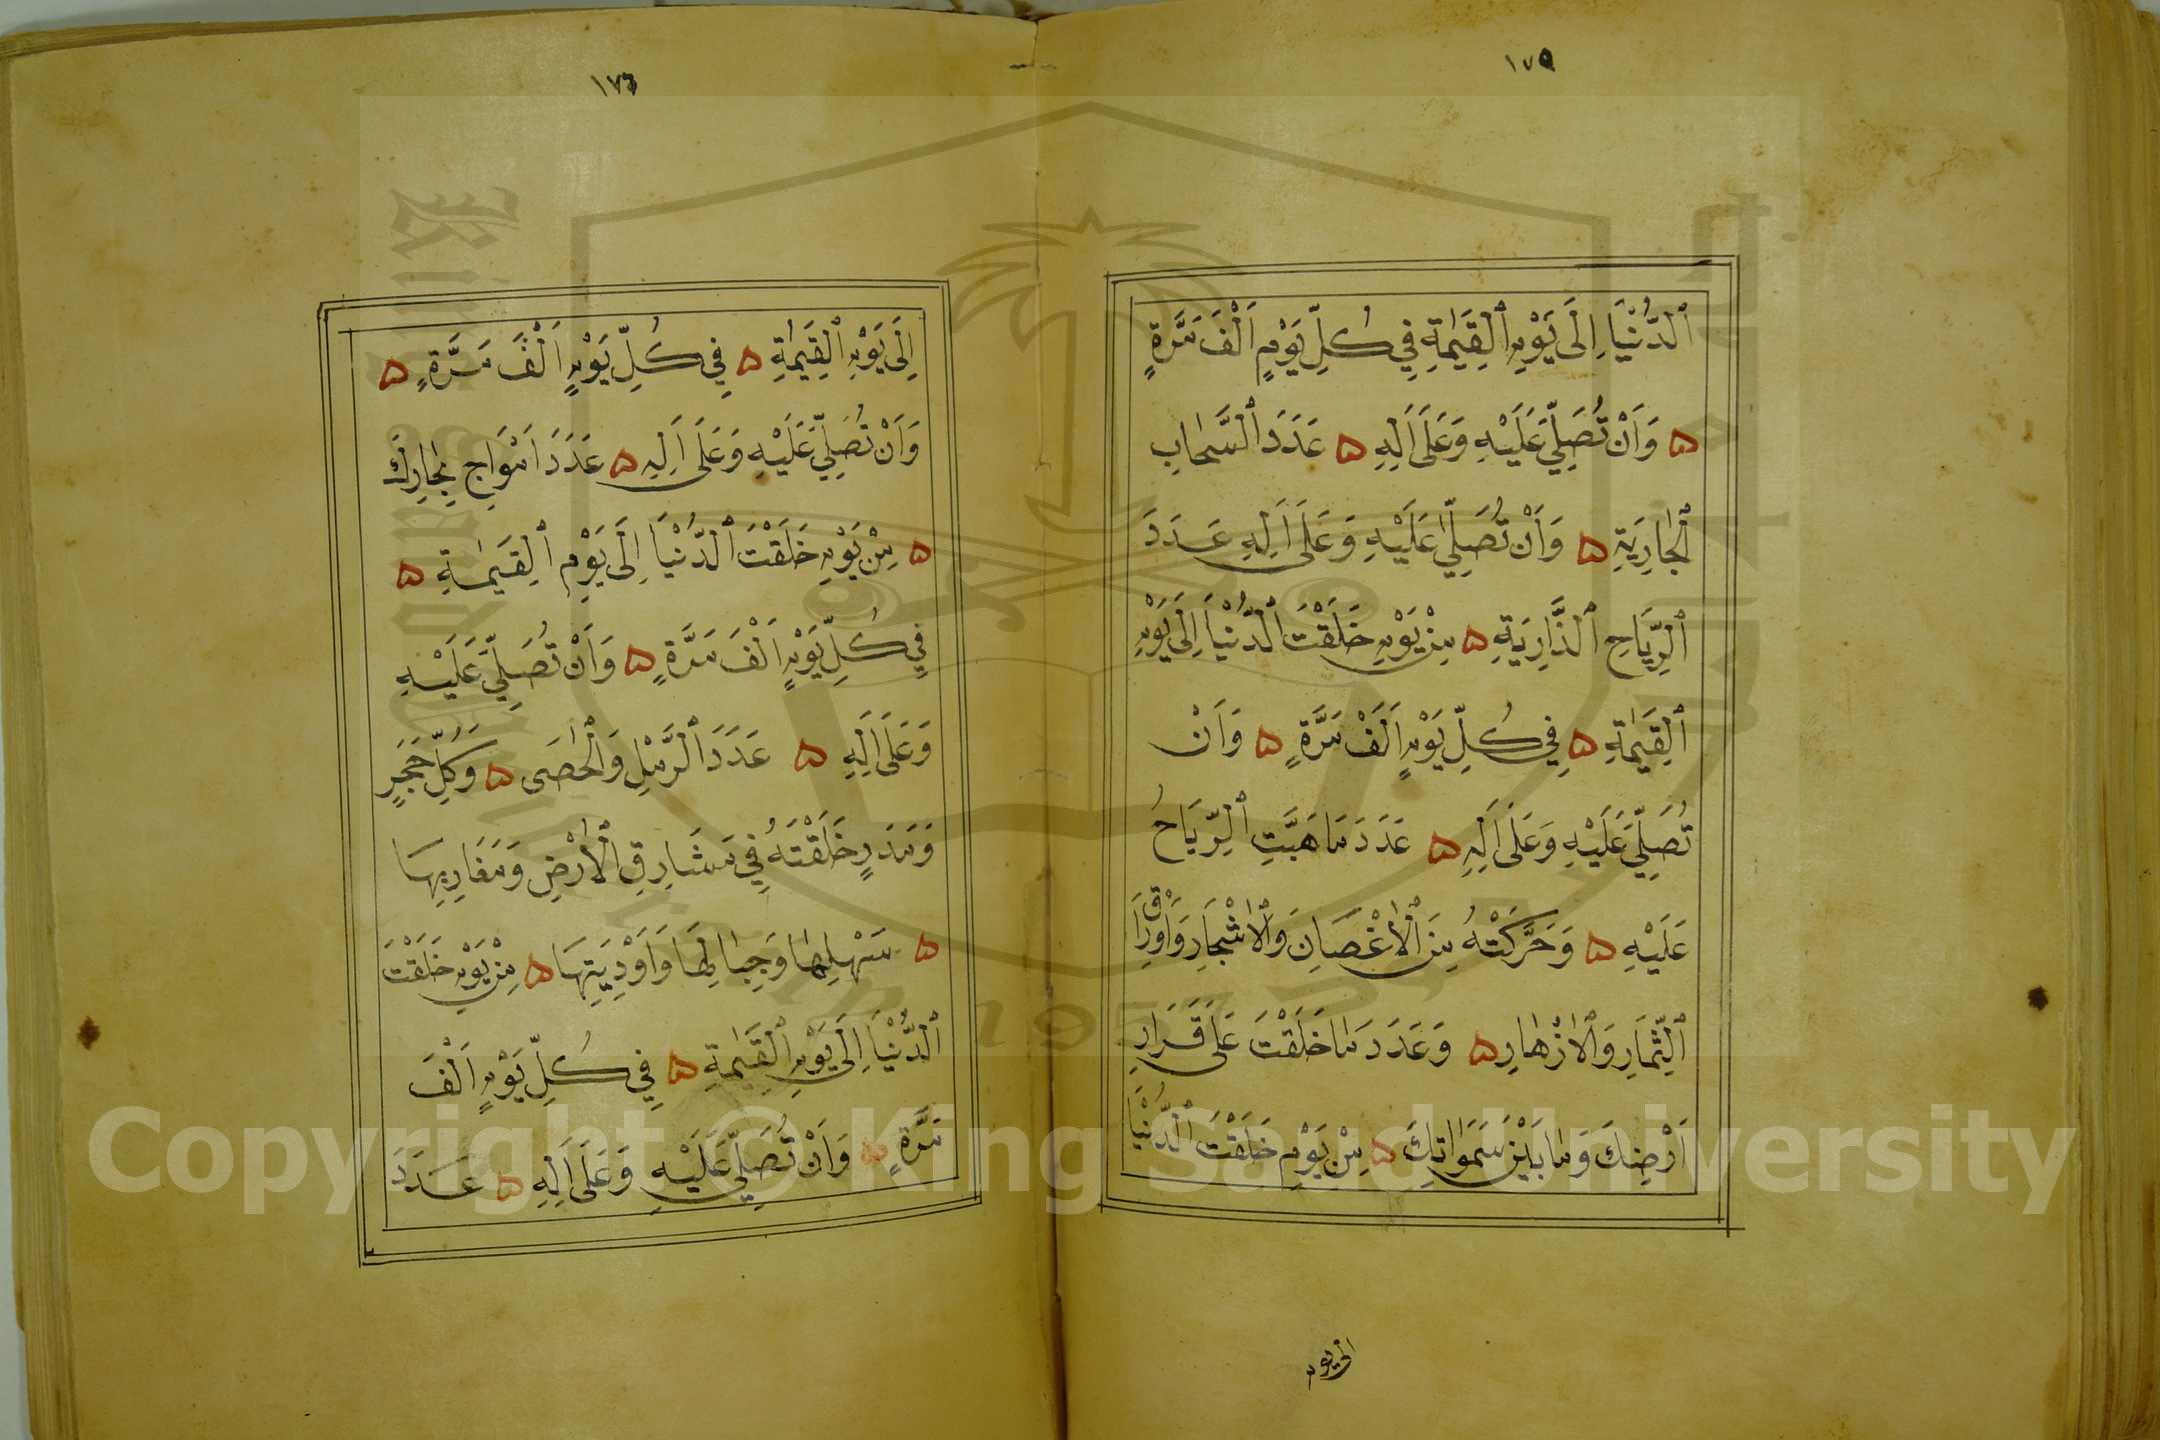 ١٧٥
ٱلدُّنْيَا اِلَى يَوْمِ ٱلْقِيٰمَةِ فِي كُلِّ يَوْمٍ اَلْفَ مَرَّةٍ
۵ وَاَنْ تُصَلِّيَ عَلَيْهِ وَعَلَى اَلِهِ ۵ عَدَدَ ٱلسَّحَابِ
ٱلْجَارِيَةِ ۵ وَاَنْ تُصَلِّيَ عَلَيْهِ وَعَلَى اَلِهِ عَدَدَ
ٱلرِّيَاحِ ٱلذَّارِيَةِ ۵ مِنْ يَوْمِ خَلَقْتَ ٱلدُّنْيَا اِلَى يَوْمِ
ٱلْقِيٰمَةِ ۵ فِي كُلِّ يَوْمٍ اَلْفَ مَرَّةٍ ۵ وَاَنْ
تُصَلِّيَ عَلَيْهِ وَعَلَى اَلِهِ ۵ عَدَدَ مَا هَبَّتِ ٱلرِّيَاحُ
عَلَيْهِ ۵ وَحَرَّكَتْهُ مِنَ ٱلْاَغْصَانِ وَٱلْاَشْجَارِ وَاَوْرَاقِ
ٱلثِّمَارِ وَٱلْاَزْهَارِ ۵ وَعَدَدَ مَا خَلَقْتَ عَلَى قَرَارِ
اَرْضِكَ وَمَا بَيْنَ سَمَوَاتِكَ ۵ مِنْ يَوْمِ خَلَقْتَ ٱلدُّنْيَا
الى يوم
١٧٦
اِلَى يَوْمِ ٱلْقِيٰمَةِ ۵ فِي كُلِّ يَوْمٍ اَلْفَ مَرَّةٍ ۵
وَاَنْ تُصَلِّيَ عَلَيْهِ وَعَلَى اَلِهِ ۵ عَدَدَ اَمْوَاجِ بِحَارِكَ
۵ مِنْ يَوْمِ خَلَقْتَ ٱلدُّنْيَا اِلَى يَوْمِ ٱلْقِيٰمَةِ ۵
فِي كُلِّ يَوْمٍ اَلْفَ مَرَّةٍ ۵ وَاَنْ تُصَلِّيَ عَلَيْهِ
وَعَلَى اَلِهِ ۵ عَدَدَ ٱلرَّمْلِ وَٱلْحَصَى ۵ وَكُلِّ حَجَرٍ
وَمَدَرٍ خَلَقْتَهُ فِي مَشَارِقِ ٱلْاَرْضِ وَمَغَارِبِهَا
۵ سَهْلِهَا وَجِبَالِهَا وَاَوْدِيَتِهَا ۵ مِنْ يَوْمِ خَلَقْتَ
ٱلدُّنْيَا اِلَى يَوْمِ ٱلْقِيٰمَةِ ۵ فِي كُلِّ يَوْمٍ اَلْفَ
مَرَّةٍ ۵ وَاَنْ تُصَلِّيَ عَلَيْهِ وَعَلَى اَلِهِ ۵ عَدَدَ
Copyright © King Saud University